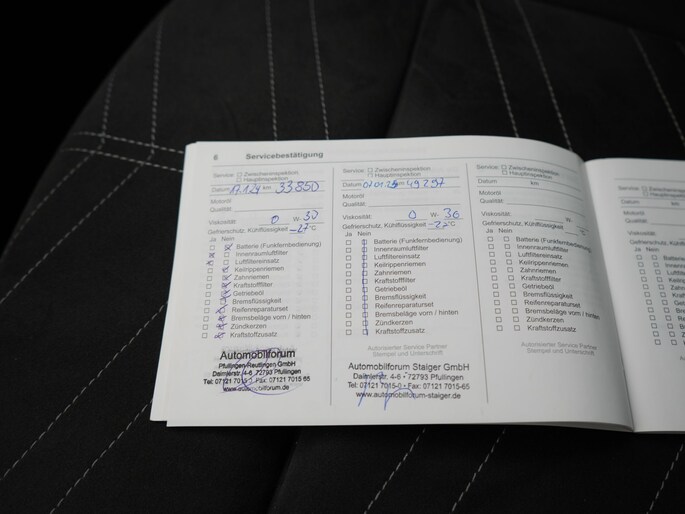 6 Servicebestätigung
Service: Zwischeninspektion
Hauptinspektion
Datum 17.1.24 km 33850
Motoröl
Qualität:
Viskosität: 0 W- 30
Gefrierschutz, Kühlflüssigkeit -27°C
Ja Nein
Batterie (Funkfernbedienung)
Innenraumluftfilter
Luftfiltereinsatz
Keilrippenriemen
Zahnriemen
Kraftstofffilter
Getriebeöl
Bremsflüssigkeit
Reifenreparaturset
Bremsbeläge vorn / hinten
Zündkerzen
Kraftstoffzusatz
Automobilforum
Pfullingen-Reutlingen GmbH
Daimlerstr. 4-6 • 72793 Pfullingen
Tel: 07121 7015-0 • Fax: 07121 7015-65
www.automobilforum.de
Service: Zwischeninspektion
Hauptinspektion
Datum 07.01.25 km 49297
Motoröl
Qualität:
Viskosität: 0 W- 30
Gefrierschutz, Kühlflüssigkeit -27°C
Ja Nein
Batterie (Funkfernbedienung)
Innenraumluftfilter
Luftfiltereinsatz
Keilrippenriemen
Zahnriemen
Kraftstofffilter
Getriebeöl
Bremsflüssigkeit
Reifenreparaturset
Bremsbeläge vorn / hinten
Zündkerzen
Kraftstoffzusatz
Automobilforum Staiger GmbH
Daimlerstr. 4-6 • 72793 Pfullingen
Tel: 07121 7015-0 • Fax: 07121 7015-65
www.automobilforum-staiger.de
Service: Zwischeninspektion
Hauptinspektion
Datum km
Motoröl
Qualität:
Viskosität: W-
Gefrierschutz, Kühlflüssigkeit °C
Ja Nein
Batterie (Funkfernbedienung)
Innenraumluftfilter
Luftfiltereinsatz
Keilrippenriemen
Zahnriemen
Kraftstofffilter
Getriebeöl
Bremsflüssigkeit
Reifenreparaturset
Bremsbeläge vorn / hinten
Zündkerzen
Kraftstoffzusatz
Autorisierter Service Partner
Stempel und Unterschrift
Service:
Datum
Motoröl
Qualität:
Viskosität:
Ja Nein